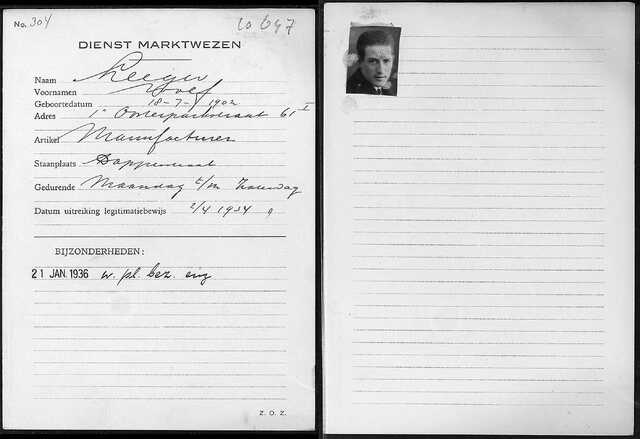 No. 304
10 647
DIENST MARKTWEZEN
Naam
Voornamen Wolf
Geboortedatum 18-7-1902
Adres 1e Oosterparkstraat 61 I
Artikel Manufacturen
Staanplaats Dapperstraat
Gedurende Maandag t/m Zaterdag
Datum uitreiking legitimatiebewijs 2/4 1934
BIJZONDERHEDEN:
21 JAN. 1936 w. pl. bez.
Z. O. Z.